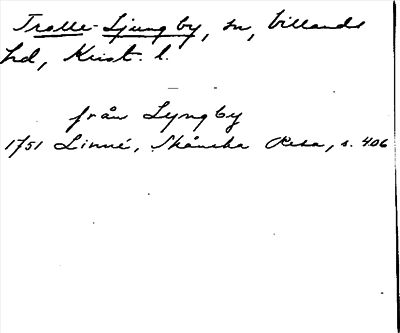 Trolle-Ljungby, sn, Villands
hd, Krist. l.
från Lyngby
1751 Linné, Skånska Resa, s. 406